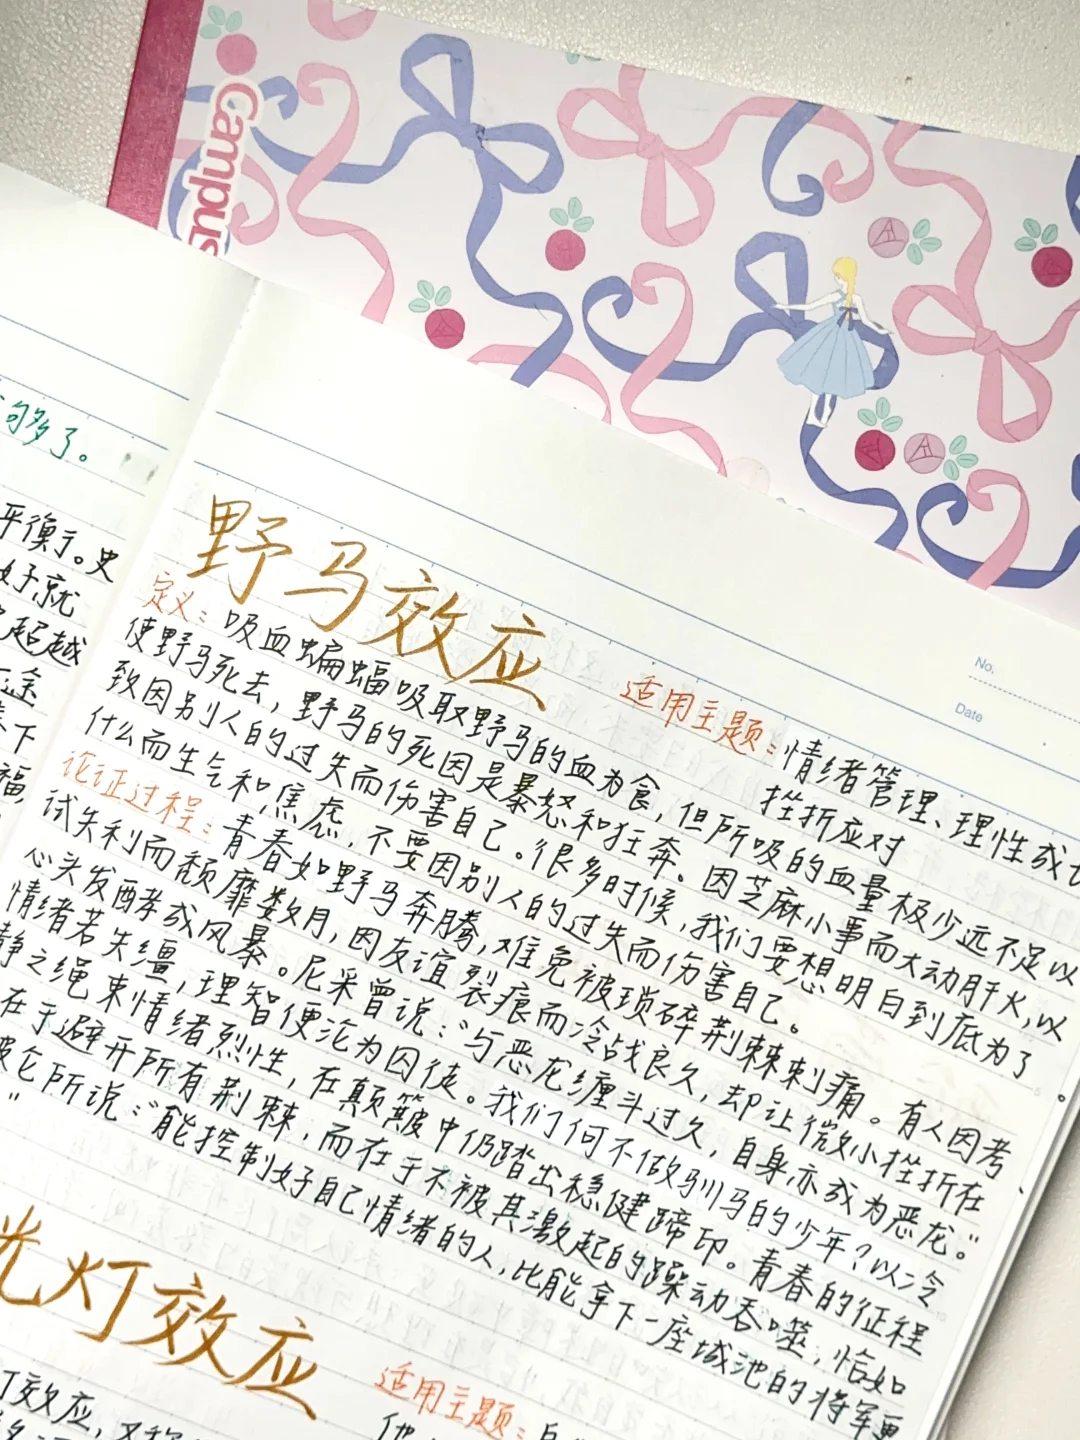 Campus
句多了。
平衡于。史
好就
超越
途
下
福，
No.
Date
野马效应
适用主题：情绪管理、理性成
挫折应对
定义：吸血蝙蝠吸取野马的血为食，但所吸的血量极少远不足以
使野马死去，野马的死因是暴怒和狂奔。因芝麻小事而大动肝火，以
致因别人的过失而伤害自己。很多时候，我们要想明白到底为了
什么而生气和焦虑，不要因别人的过失而伤害自己。
论证过程：青春如野马奔腾，难免被琐碎荆棘刺痛。有人因考
试失利而颓靡数月，因友谊裂痕而冷战良久，却让微小挫折在
心头发酵成风暴。尼采曾说：“与恶龙缠斗过久，自身亦成为恶龙。”
情绪若失缰，理智便沦为囚徒。我们何不做驯马的少年？以冷
静之绳束情绪烈性，在颠簸中仍踏出稳健蹄印。青春的征程
在于避开所有荆棘，而在于不被其激起的躁动吞噬，恰如
破仑所说：“能控制好自己情绪的人，比能拿下一座城池的将军更
”
光灯效应
适用主题：
灯效应，又称
他